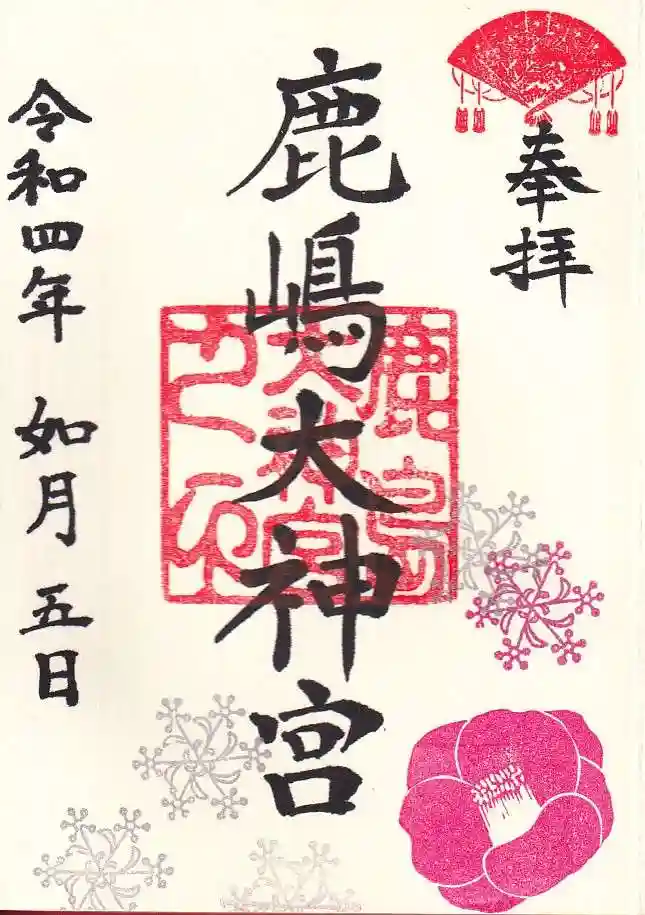 奉拝
鹿嶋大神宮
鹿島
大神宮
之印
令和四年 如月 五日